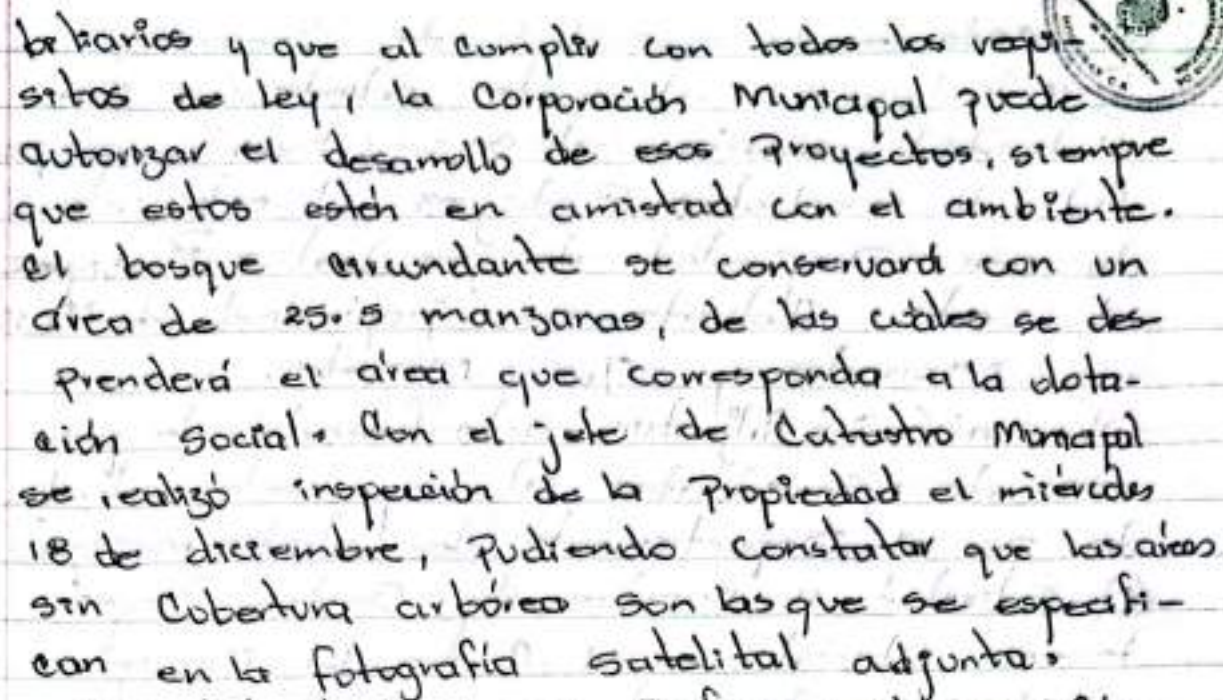 betarios y que al cumplir con todos los requi-
sitos de ley, la Corporación Municipal puede
autorizar el desarrollo de esos Proyectos, siempre
que estos estén en amistad con el ambiente.
El bosque circundante se conservará con un
área de 25.5 manzanas, de las cuales se des-
prenderá el área que corresponda a la dota-
ción Social. Con el jefe de Catastro Municipal
se realizó inspección de la Propiedad el miércoles
18 de diciembre, Pudiendo constatar que las áreas
sin Cobertura arbórea son las que se especifi-
can en la fotografía satelital adjunta.